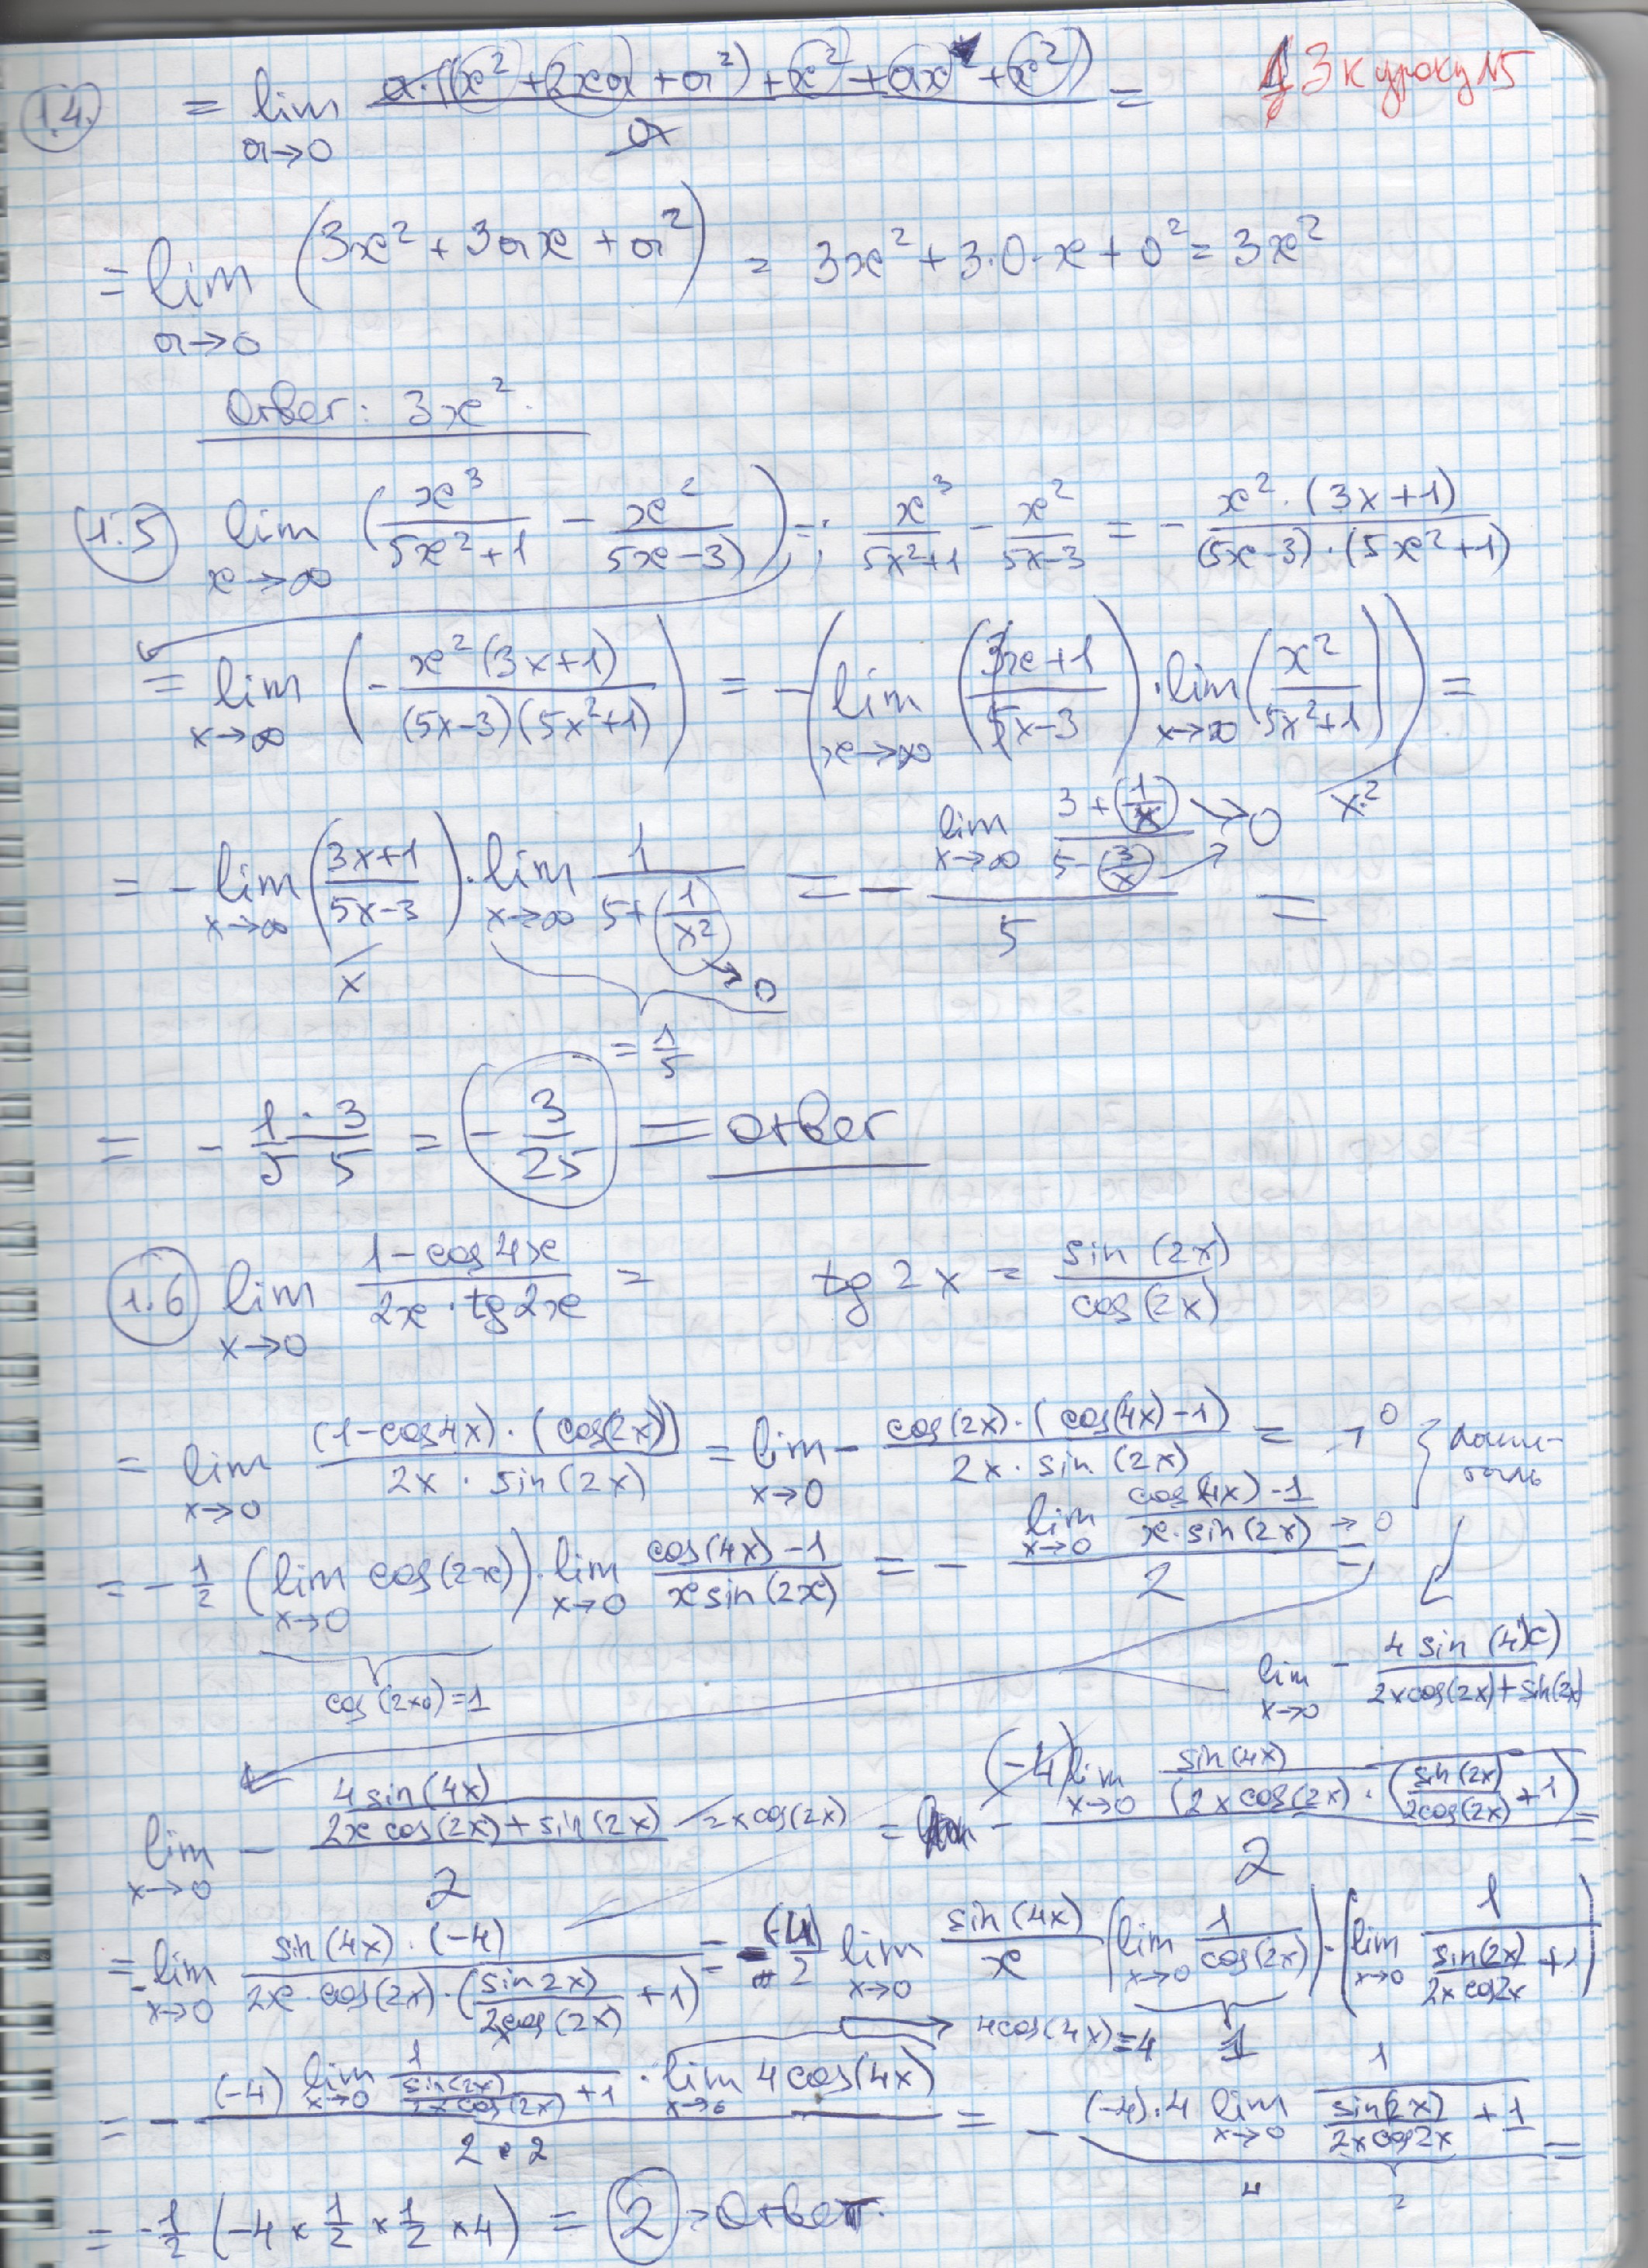 ДЗ к уроку №5
1.4. = lim a→0 a·((x² + 2xa + a²) + x² + ax + x²) / a =
= lim a→0 (3x² + 3ax + a²) = 3x² + 3·0·x + 0² = 3x²
Ответ: 3x².
1.5 lim x→∞ (x³/(5x²+1) − x²/(5x−3)) = ; x³/(5x²+1) − x²/(5x−3) = − x²·(3x+1) / ((5x−3)·(5x²+1))
= lim x→∞ (− x²(3x+1) / ((5x−3)(5x²+1))) = −(lim x→∞ ((3x+1)/(5x−3)) · lim x→∞ (x²/(5x²+1))) =
x²
= − lim x→∞ ((3x+1)/(5x−3)) · lim x→∞ 1/(5+(1/x²)) = − (lim x→∞ (3+(1/x))/(5−(3/x)))/5 =
→ 0
x
→ 0
= 1/5
= − 1/5 · 3/5 = − 3/25 = ответ
1.6 lim x→0 (1−cos4x)/(2x·tg2x) = tg2x = sin(2x)/cos(2x)
= lim x→0 (1−cos4x)·(cos(2x)) / (2x·sin(2x)) = lim x→0 − cos(2x)·(cos(4x)−1) / (2x·sin(2x)) =
→ 0
= − 1/2 (lim x→0 cos(2x)) · lim x→0 (cos(4x)−1)/(x sin(2x)) = − (lim x→0 (cos(4x)−1)/(x·sin(2x)))/2 =
→ 0
cos(2×0)=1
lim x→0 − 4sin(4x)/(2xcos(2x)+sin(2x))
lim x→0 − (4sin(4x)/(2x cos(2x)+sin(2x)))/2 2xcos(2x) = − ((−4) lim x→0 sin(4x)/((2x cos(2x)·(sin(2x)/2cos(2x) + 1)))/2 =
= − lim x→0 sin(4x)·(−4) / (2x·cos(2x)·(sin2x/2xcos(2x) + 1)) = − (−4)/2 lim x→0 sin(4x)/x (lim x→0 1/cos(2x)) · (lim x→0 1/(sin(2x)/2xcos2x + 1))
4cos(4x)=4 1
= − ((−4) lim x→0 1/(sin(2x)/2xcos(2x) + 1) · lim x→0 4cos(4x))/(2·2) = − ((−4)·4 lim x→0 1/(sin(2x)/2xcos2x + 1))/4 =
= − 1/2 (−4 × 1/2 × 1/2 × 4) = 2 = Ответ.